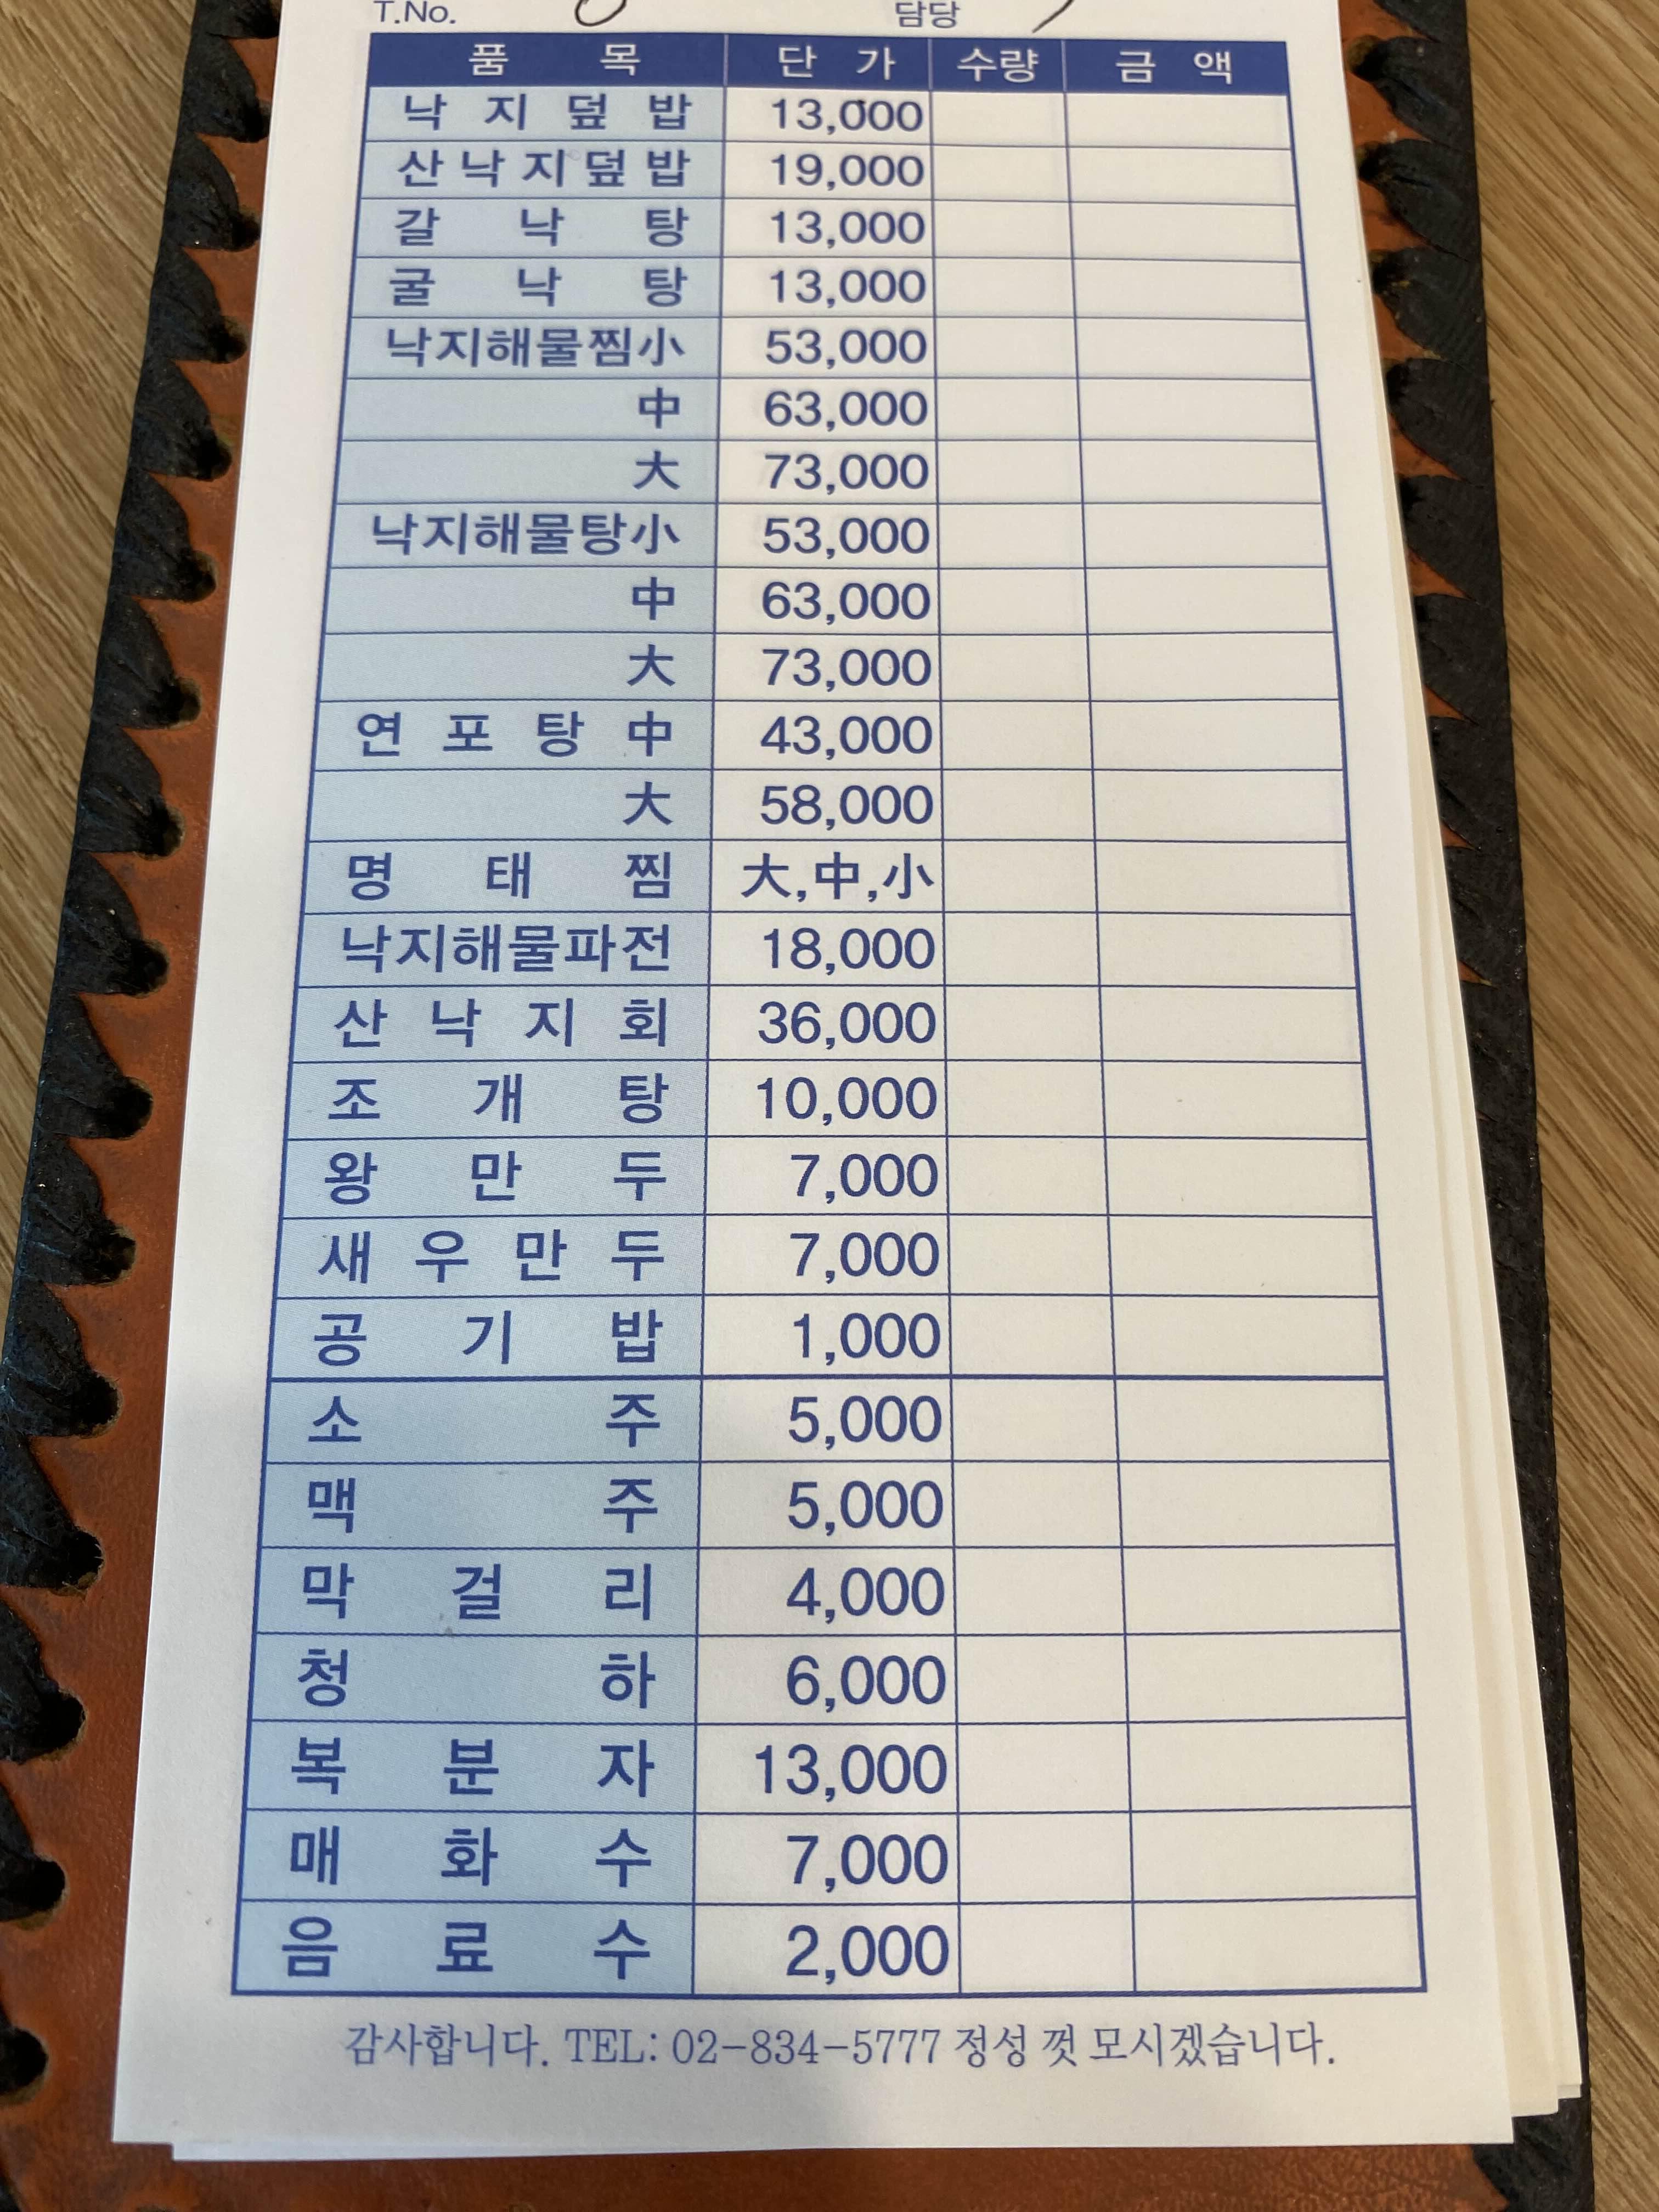 T.No. 담당
품 목 단 가 수량 금 액
낙 지 덮 밥 13,000
산낙지덮밥 19,000
갈 낙 탕 13,000
굴 낙 탕 13,000
낙지해물찜小 53,000
中 63,000
大 73,000
낙지해물탕小 53,000
中 63,000
大 73,000
연 포 탕 中 43,000
大 58,000
명 태 찜 大,中,小
낙지해물파전 18,000
산 낙 지 회 36,000
조 개 탕 10,000
왕 만 두 7,000
새 우 만 두 7,000
공 기 밥 1,000
소 주 5,000
맥 주 5,000
막 걸 리 4,000
청 하 6,000
복 분 자 13,000
매 화 수 7,000
음 료 수 2,000
감사합니다. TEL: 02-834-5777 정성 껏 모시겠습니다.